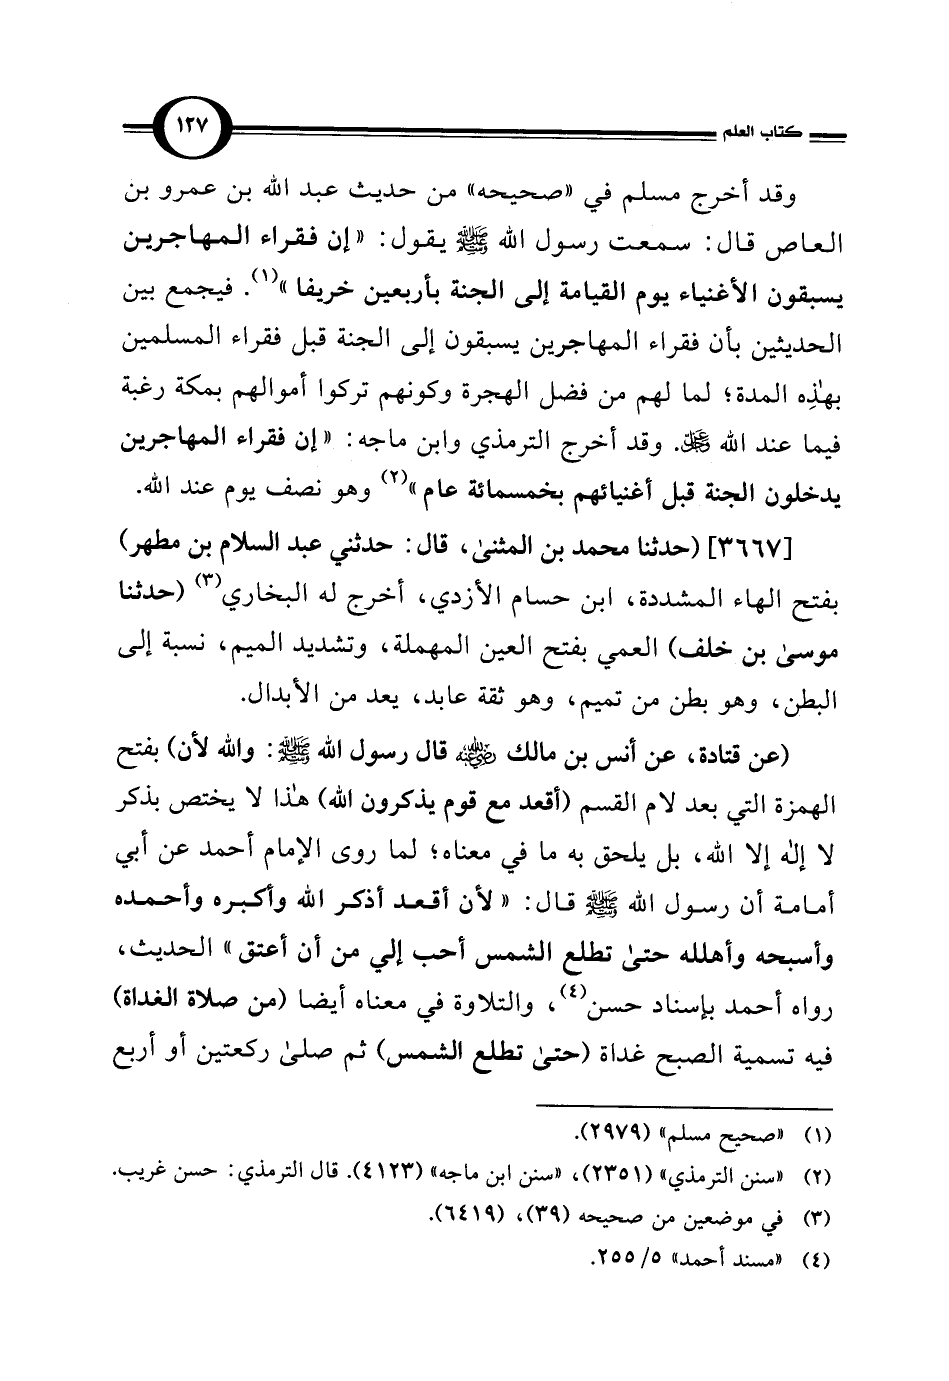 كتاب العلم ١٢٧
وقد أخرج مسلم في «صحيحه» من حديث عبد الله بن عمرو بن
العاص قال: سمعت رسول الله ﷺ يقول: «إن فقراء المهاجرين
يسبقون الأغنياء يوم القيامة إلى الجنة بأربعين خريفا»(١). فيجمع بين
الحديثين بأن فقراء المهاجرين يسبقون إلى الجنة قبل فقراء المسلمين
بهٰذِه المدة؛ لما لهم من فضل الهجرة وكونهم تركوا أموالهم بمكة رغبة
فيما عند الله ﷿. وقد أخرج الترمذي وابن ماجه: «إن فقراء المهاجرين
يدخلون الجنة قبل أغنيائهم بخمسمائة عام»(٢) وهو نصف يوم عند الله.
[٣٦٦٧] (حدثنا محمد بن المثنىٰ، قال: حدثني عبد السلام بن مطهر)
بفتح الهاء المشددة، ابن حسام الأزدي، أخرج له البخاري(٣) (حدثنا
موسىٰ بن خلف) العمي بفتح العين المهملة، وتشديد الميم، نسبة إلى
البطن، وهو بطن من تميم، وهو ثقة عابد، يعد من الأبدال.
(عن قتادة، عن أنس بن مالك رضي الله عنه قال رسول الله ﷺ: والله لأن) بفتح
الهمزة التي بعد لام القسم (أقعد مع قوم يذكرون الله) هٰذا لا يختص بذكر
لا إلٰه إلا الله، بل يلحق به ما في معناه؛ لما روى الإمام أحمد عن أبي
أمامة أن رسول الله ﷺ قال: «لأن أقعد أذكر الله وأكبره وأحمده
وأسبحه وأهلله حتىٰ تطلع الشمس أحب إلي من أن أعتق» الحديث،
رواه أحمد بإسناد حسن(٤)، والتلاوة في معناه أيضا (من صلاة الغداة)
فيه تسمية الصبح غداة (حتىٰ تطلع الشمس) ثم صلىٰ ركعتين أو أربع
(١) «صحيح مسلم» (٢٩٧٩).
(٢) «سنن الترمذي» (٢٣٥١)، «سنن ابن ماجه» (٤١٢٣). قال الترمذي: حسن غريب.
(٣) في موضعين من صحيحه (٣٩)، (٦٤١٩).
(٤) «مسند أحمد» ٥/ ٢٥٥.